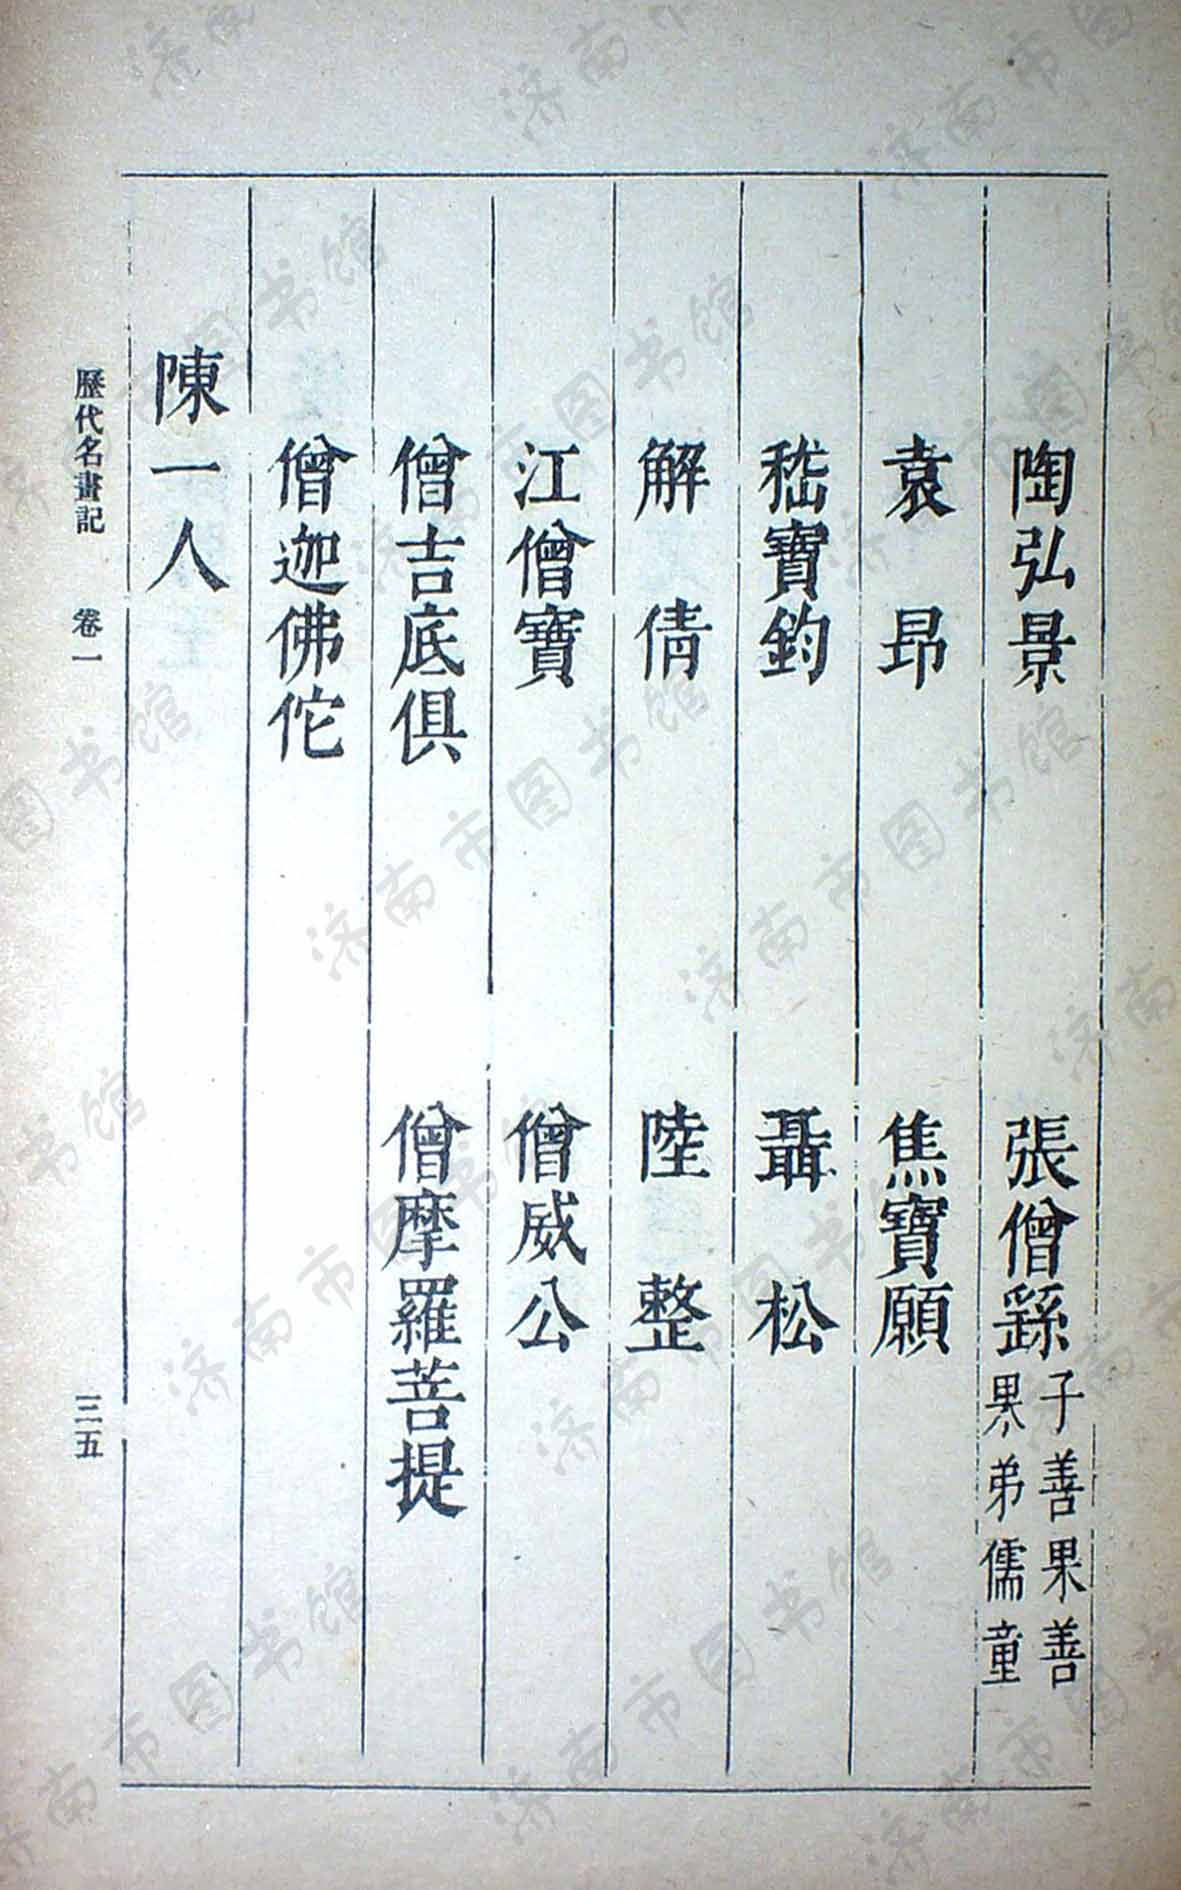 陶弘景 張僧繇 子善果善果弟儒童
袁昂 焦寶願
嵇寶鈞 聶松
解倩 陸整
江僧寶 僧威公
僧吉底俱 僧摩羅菩提
僧迦佛佗
陳一人
歷代名畫記 卷一 三五
济南市图书馆